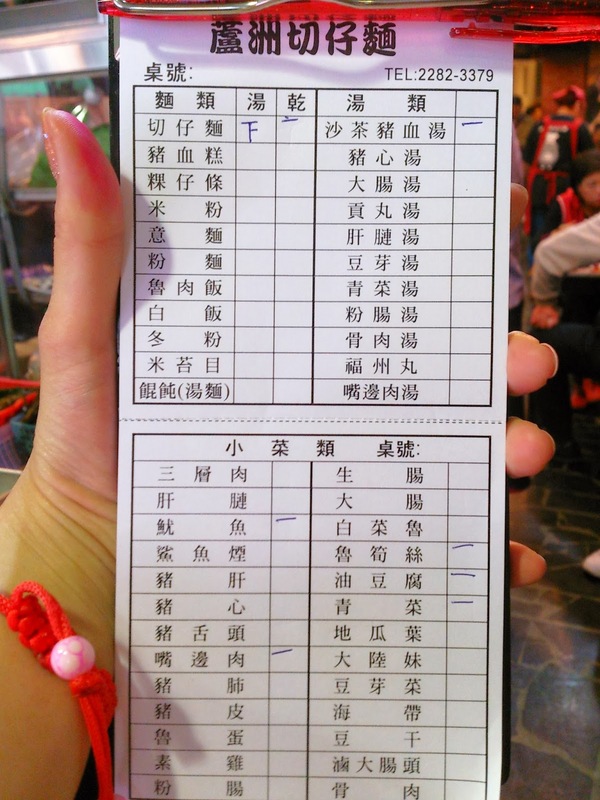 蘆洲切仔麵
桌號: TEL:2282-3379
麵類 湯 乾 湯類
切仔麵 下 二 沙茶豬血湯 一
豬血糕 豬心湯
粿仔條 大腸湯
米粉 貢丸湯
意麵 肝膁湯
粉麵 豆芽湯
魯肉飯 青菜湯
白飯 粉腸湯
冬粉 骨肉湯
米苔目 福州丸
餛飩(湯麵) 嘴邊肉湯
小菜類 桌號:
三層肉 生腸
肝膁 大腸
魷魚 一 白菜魯
鯊魚煙 魯筍絲 一
豬肝 油豆腐 一
豬心 青菜 一
豬舌頭 地瓜葉
嘴邊肉 一 大陸妹
豬肺 豆芽菜
豬皮 海帶
魯蛋 豆干
素雞 滷大腸頭
粉腸 骨肉